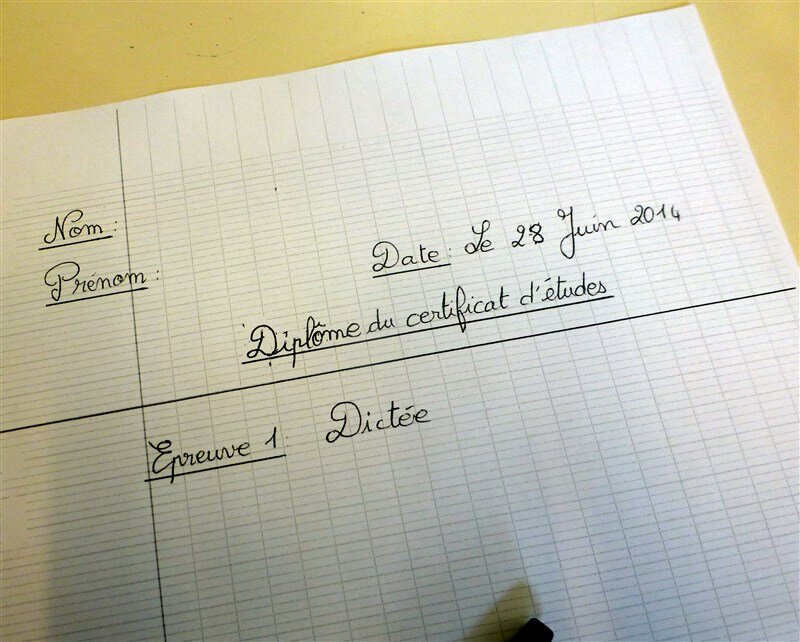 Nom :
Prénom :
Date : Le 28 Juin 2014
Diplôme du certificat d'études
Epreuve 1 : Dictée